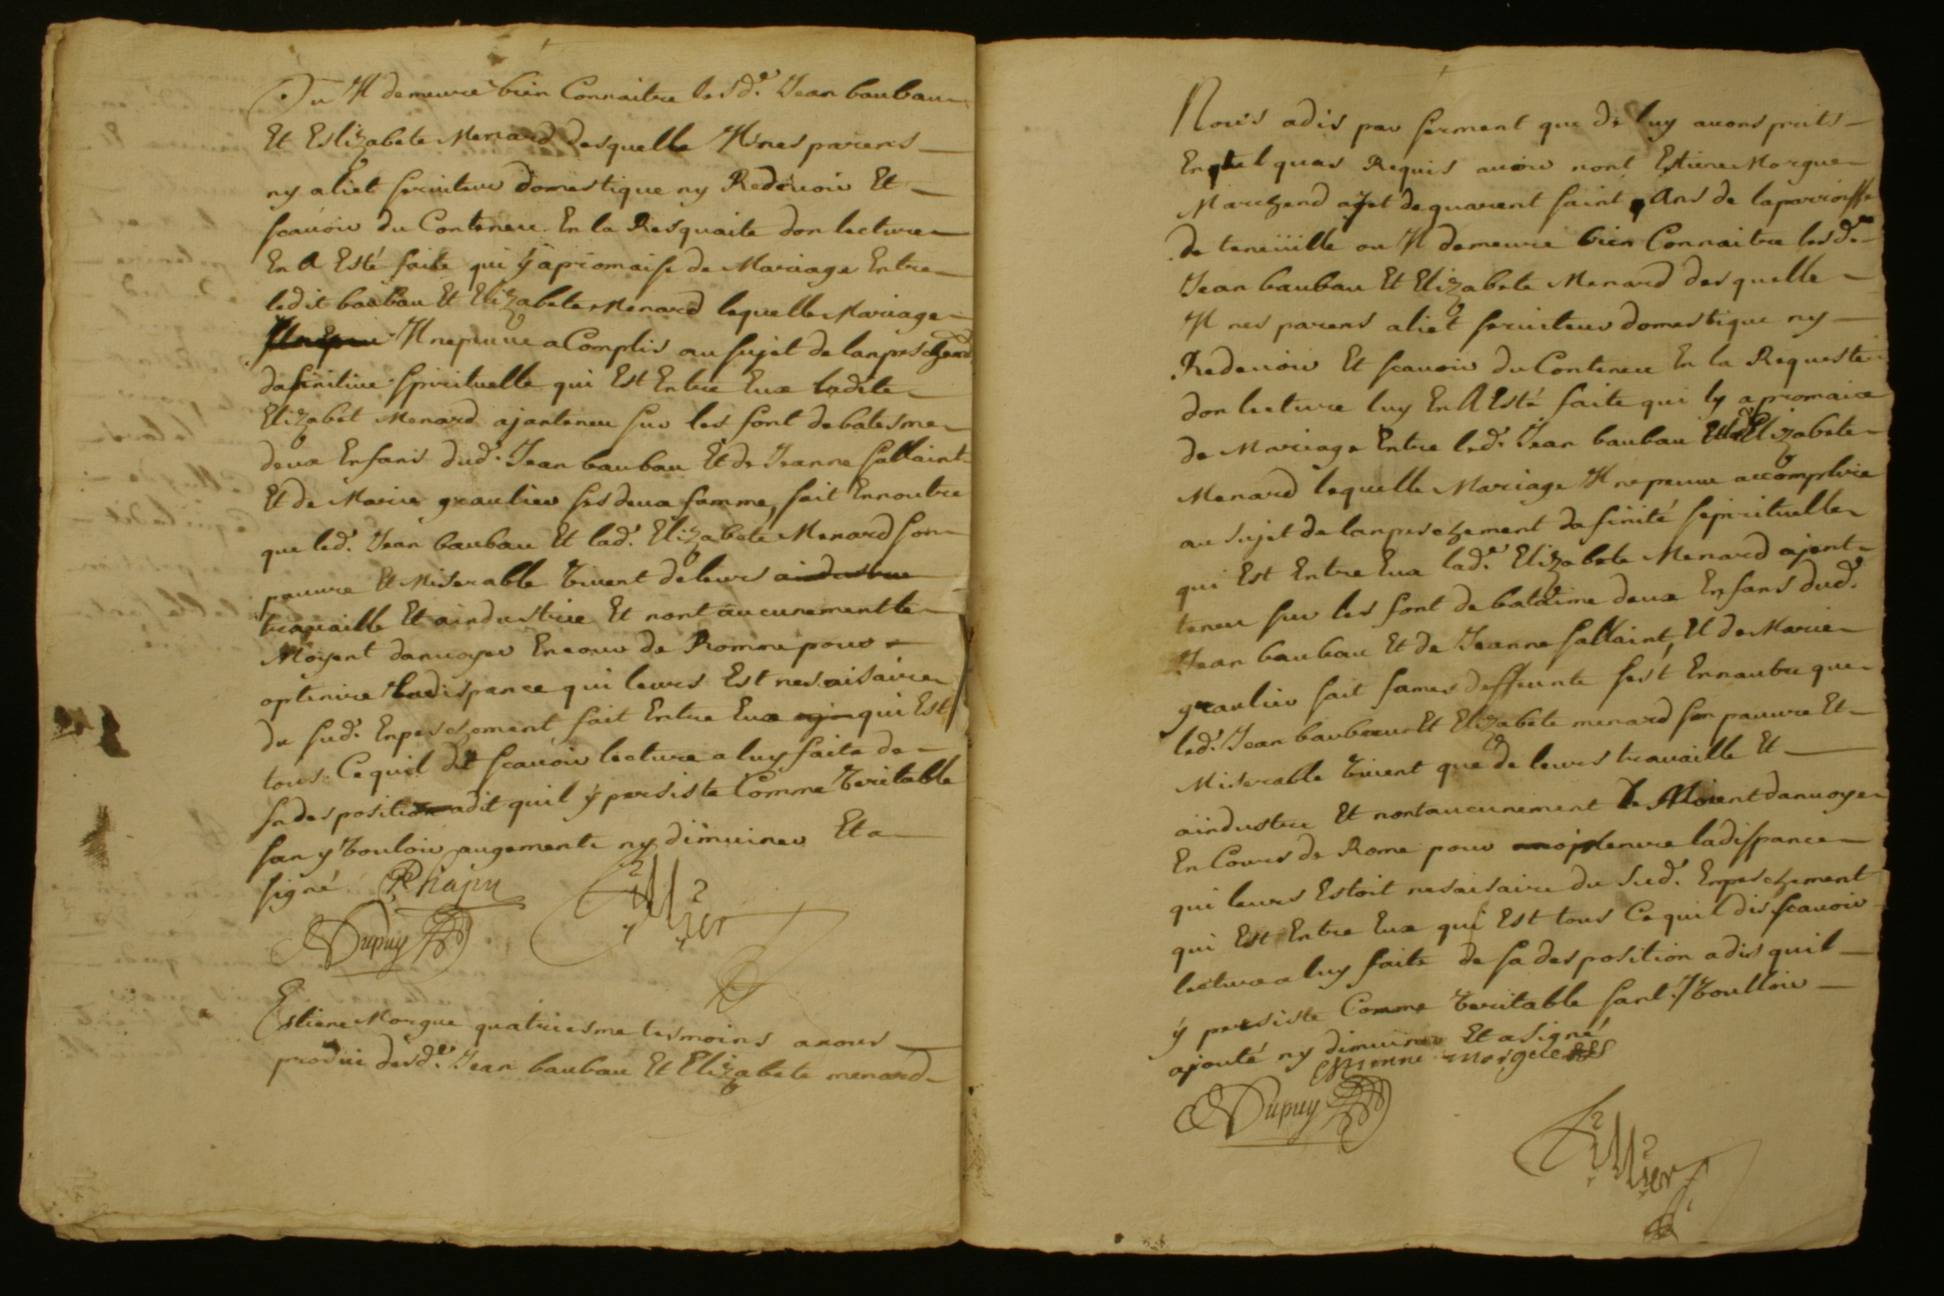 Ou Il demeure bien Connaitre les de. Jean baubau
Et Eslizabete Menard desquelle Il nes parens
ny aliet seruiteur domestique ny Redeuoir Et
scauoir du Conteneu En la Resquaite don lecture
En A Esté faite qui y a promaise de Mariage Entre
ledit baubau Et Elizabete Menard lequelle Mariage
Il nepeuue a Complir au sujet de lanpeschem
dafinitiue spirituelle qui Est Entre Eux ladite
Elizabet Menard ajanteneu sur les font de batesme
deux Enfans dud. Jean baubau Et de Jeanne sallaint
Et de Marie graulieu ses deux famme, sait Ennoutre
que led. Jean baubau Et lad. Elizabete Menard son
pauure Et Miserable viuent de leurs aindustrie
trauaille Et aindustrie Et nont aucunement le
Moyent danuoyer En cour de Romme pour
optenire ladispance qui leurs Est nesaisaire
du sud. Enpeschement sait Entre Eux qui Est
tous Ce quil dit scauoir lecture a luy faite de
sa desposition adit quil y persiste Comme veritable
san y vouloir augemente ny diminuer Et a
signé Phajin
Dupuy
Estiene Morgue quatriesme tesmoins anous
produi desde. Jean baubau Et Elizabete menard
Nous adis par serment que de luy auons prits
En tel quas Requis auoir nont Estiene Morgue
Marchend ajet de quarent saint Ans de la parroisse
de teneuille ou Il demeure bien Connaitre lesde.
Jean baubau Et Elizabete Menard desquelle
Il nes parens aliet seruiteur domestique ny
Redeuoir Et scauoir du Conteneu En la Requeste
don lecture luy En A Esté faite qui ly a promaice
de Mariage Entre led. Jean baubau Et Elizabete
Menard lequelle Mariage Il nepeuue accomplire
au sujet de lanpeschement dafinité spirituelle
qui Est Entre Eux lade. Elizabete Menard ajent
teneu sur les font de bataime deux Enfans dud.
Jean baubau Et de Jeanne sallaint, Et de Marie
graulieu sait fames deffeunte sest Ennautre que
led. Jean baubau Et Elizabete menard son pauure Et
Miserable viuent que de leurs trauaille Et
aindustrie Et nont aucunement le Moient danuoyer
En Cours de Rome pour optenire ladispance
qui leurs Estoit nesaisaire du sud. Enpeschement
qui Est Entre Eux qui Est tous Ce quil dis scauoir
lecture a luy faite de sa desposition adis quil
y persiste Comme veritable sant y voulloir
ajouté ny diminuer Et a signé
Estienne morgue
Dupuy